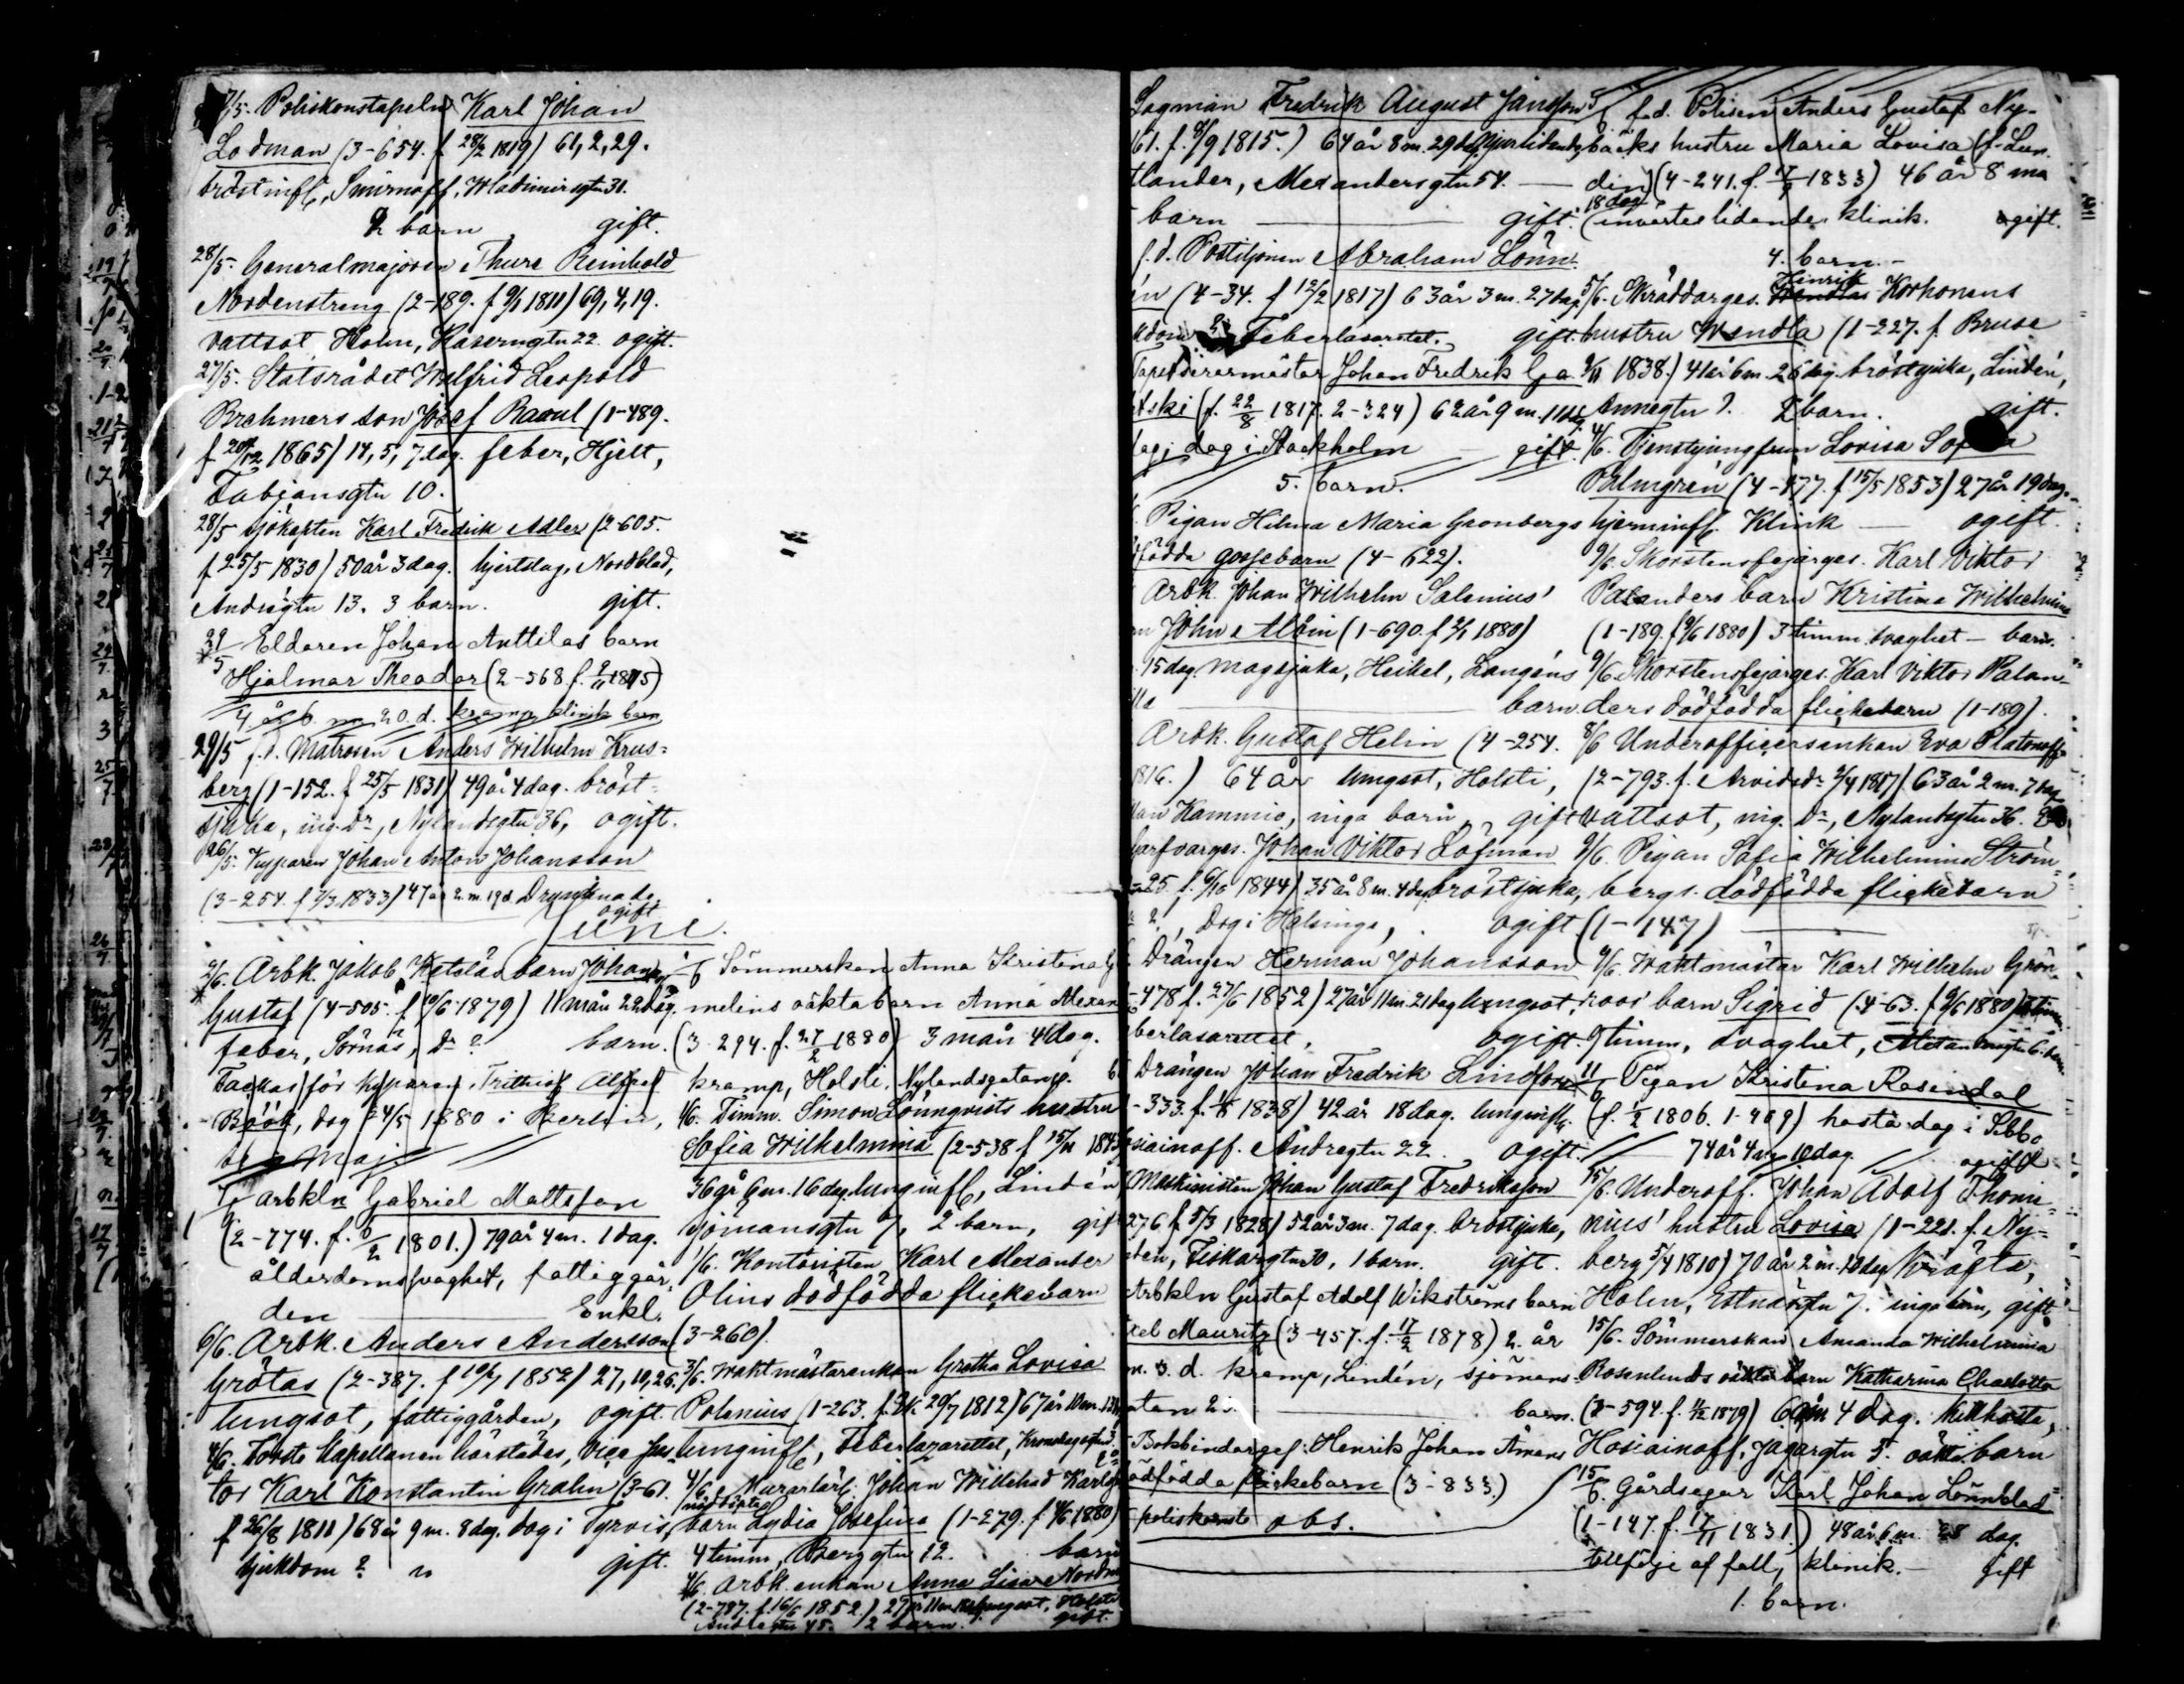 7/5. Poliskonstapeln Karl Johan
Lodman (3-654. f. 28/2 1819) 61, 2, 29.
bröstinfl, Smirnoff, Wladimirsgtn 31.
2 barn gift.
28/5. Generalmajoren Thure Reinhold
Nordenstreng (2-189. f 9/1 1811) 69, 4, 19.
vattsot, Holm, Kaserngtn 22. ogift.
27/5. Statsrådet Walfrid Leopold
Brehmers son Josef Raoul (1-489.
f 20/12 1865) 14, 5, 7 dag. feber, Hjelt,
Fabiansgtn 10.
28/5 sjökapten Karl Fredrik Adler (2-605.
f 25/5 1830) 50 år 3 dag. hjertslag, Nordblad,
Andregtn 13. 3 barn. gift.
29/5 Eldaren Johan Anttilas barn
Hjalmar Theodor (2-568. f. 9/11 1875)
4 år 6 m 20 d. kramp klinik barn
29/5 f.d. Matrosen Anders Wilhelm Krus=
berg (1-152. f 25/5 1831) 49 år 4 dag. bröst=
sjuka, ing. Dr, Nylandsgtn 36, ogift.
26/5. Kyparen Johan Anton Johansson
(3-254. f 7/3 1833) 47 år 2 m 19 d. Drunknade
ogift
Juni.
2/6. Arbk. Jakob Ketsläs barn Johan
Gustaf (4-505. f 10/6 1879) 11 mån 22 dag.
feber, Sörnäs, Dr ? barn.
Tackas för kyparen Frithiof Alfred
Böök, dog 24/5 1880 i Berlin,
Maj.
arbkln Gabriel Mattsson
(2-774. f. 6/2 1801.) 79 år 4 m. 1 dag.
ålderdomsvaghet, fattiggår=
den Enkl.
6/6. Arbk. Anders Andersson
Grötas (2-387. f 10/7 1852) 27, 10, 26.
lungsot, fattiggården, ogift.
4/6. Förste kapellanen härstädes, vice pas=
tor Karl Konstantin Grahn (3-61.
f 26/8 1811) 68 år 9 m. 8 dag. dog i Tyrvis,
sjukdom ? gift.
Sömmerskan Anna Kristina
melins oäkta barn Anna Alexan
(3-294. f. 27/2 1880) 3 mån 4 dag.
kramp, Holsti, Nylandsgatan
4/6. Timm. Simon Lönnqvists hustru
Sofia Wilhelmina (2-538 f 15/11 1843
36 år 6 m. 16 dag lunginfl, Lindén
sjömansgtn 7, 2 barn, gift
1/6. Kontoristen Karl Alexander
Olins dödfödda flickebarn
(3-260).
3/6. Waktmästarenkan Gretha Lovisa
Polenius (1-263. f. 29/7 1812) 67 år 10 m.
lunginfl, Feberlazarettet,
4/6 Murarlärl. Johan Willehad Karls
nöddöpta
barn Lydia Josefina (1-279. f 4/6 1880)
4 timm, Berggtn 12. barn
4/6. Arbk. enkan Anna Lisa Nord
(2-787. f. 16/6 1852.) 27 år 11 m lungsot, Holsti
Andregtn 45. 2 barn. gift.
Lagman Fredrik August Jansson
61. f. 8/9 1815.) 64 år 8 m. 29 dag. Njurlidande
tlander, Alexandersgtn 54.
barn gift.
f.d. Postiljonen Abraham Lönn=
én (4-34. f 12/2 1817) 63 år 3 m. 27 dag
kdom ? Feberlasarettet. gift.
Tapetserarmästar Johan Fredrik
tski (f. 22/8 1817. 2-324) 62 år 9 m. 11
dag i Stockholm gift.
5. barn.
Pigan Hilma Maria Grönbergs
dfödda gossebarn (4-622).
Arbk. Johan Wilhelm Salenius'
n John Albin (1-690. f 2/1 1880)
15 dag. magsjuka, Heikel, Langéns
lla barn.
Arbk. Gustaf Helin (4-254.
1816.) 64 år lungsot, Holsti,
Kammio, inga barn, gift
Garfvarges. Johan Viktor Löfman
25. f. 9/10 1844) 35 år 8 m. 4 dag bröstsjuka,
?, Dog i Helsinge, ogift.
Drängen Herman Johansson
-478 f. 27/6 1852) 27 år 11 m. 21 dag lungsot,
berlasarettet, ogift.
Drängen Johan Fredrik Lindfors
-333. f. 1838) 42 år 18 dag. lunginfl,
osiainoff. Andregtn 22. ogift.
Maskinisten Johan Gustaf Fredriksson
276 f 5/3 1828) 52 år 3 m. 7 dag. bröstsjuka,
Fiskargtn 30, 1 barn. gift.
Arbkln Gustaf Adolf Wikströms barn
xel Mauritz (3-457. f. 17/2 1878) 2 år
m. d. kramp, Lindén, sjömans=
atan 2. barn.
Bokbindargesl. Henrik Johan Åmans
dödfödda flickebarn (3-833.)
poliskonst obs.
5/6 f.d. Polisen Anders Gustaf Ny=
bäcks hustru Maria Lovisa (f. Lun
din) (4-241. f. 1833) 46 år 8 m
18 dag
invärtes lidande. klinik. gift.
4. barn.
5/6. Skräddarges. Henrik Korhonens
hustru Wendla (1-227. f. Bruse
1838.) 41 år 6 m. 26 dag bröstsjuka, Lindén,
Annegtn 7. 2 barn. gift.
4/6. Tjenstejungfrun Lovisa Sofia
Palmgrén (4-477. f 15/5 1853) 27 år 19 dag.
hjerninfl. Klinik ogift.
9/6. Skorstensfejarges. Karl Viktor
Palanders barn Kristina Wilhelmina
(1-189. f 9/6 1880) 3 timm. svaghet barn.
9/6. Skorstensfejarges. Karl Viktor Palan=
ders dödfödda flickebarn (1-189).
8/6 Underofficersenkan Eva Platonoff
(2-793. f. Arvidsdr 2/4 1817) 63 år 2 m. 7 dag
vattsot, ing. Dr, Nylandsgtn 36.
9/6. Pigan Sofia Wilhelmina Ström=
bergs dödfödda flickebarn
(1-147)
9/6. Waktmästar Karl Wilhelm Grön=
roos' barn Sigrid (4-63. f 9/6 1880)
9 timm, svaghet,
11/6 Pigan Kristina Rosendal
(f. 1/2 1806. 1-409) hosta dog i Sibbo
74 år 4 m 10 dag. ogift
15/6. Underoff. Johan Adolf Thomi=
nius' hustru Lovisa (1-221. f. Ny=
berg 5/4 1810) 70 år 2 m. 10 dag kräfta,
Holm, Estnäsgtn 7. inga barn, gift
15/6. Sömmerskan Amanda Wilhelmina
Rosenlunds oäkta barn Katharina Charlotta
(3-594. f. 1879) 4 dag. kikhosta,
Hosiainoff, Jägargtn 5. oäkta barn
15/6. Gårdsegar Karl Johan Lönnblad
(1-147. f. 17/11 1831.) 48 år 6 m. 28 dag.
tillfölje af fall, klinik. gift
1. barn.